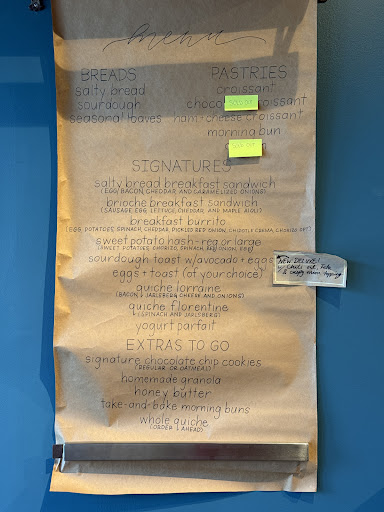 menu
BREADS
salty bread
sourdough
seasonal loaves
PASTRIES
croissant
choco croissant
ham + cheese croissant
morning bun
SIGNATURES
salty bread breakfast sandwich
(EGG, BACON, CHEDDAR, AND CARAMELIZED ONIONS)
brioche breakfast sandwich
(SAUSAGE, EGG, LETTUCE, CHEDDAR, AND MAPLE AIOLI)
breakfast burrito
(EGG, POTATOES, SPINACH, CHEDDAR, PICKLED RED ONION, CHIPOTLE CREMA, CHORIZO OPT)
sweet potato hash - reg or large
(SWEET POTATOES, CHORIZO, SPINACH, RED ONION, EGG)
sourdough toast w/avocado + eggs
eggs + toast (of your choice)
quiche lorraine
(BACON & JARLSBERG CHEESE AND ONIONS)
quiche florentine
(SPINACH AND JARLSBERG)
yogurt parfait
EXTRAS TO GO
signature chocolate chip cookies
(REGULAR OR OATMEAL)
homemade granola
honey butter
take-and-bake morning buns
whole quiche
(ORDER AHEAD)